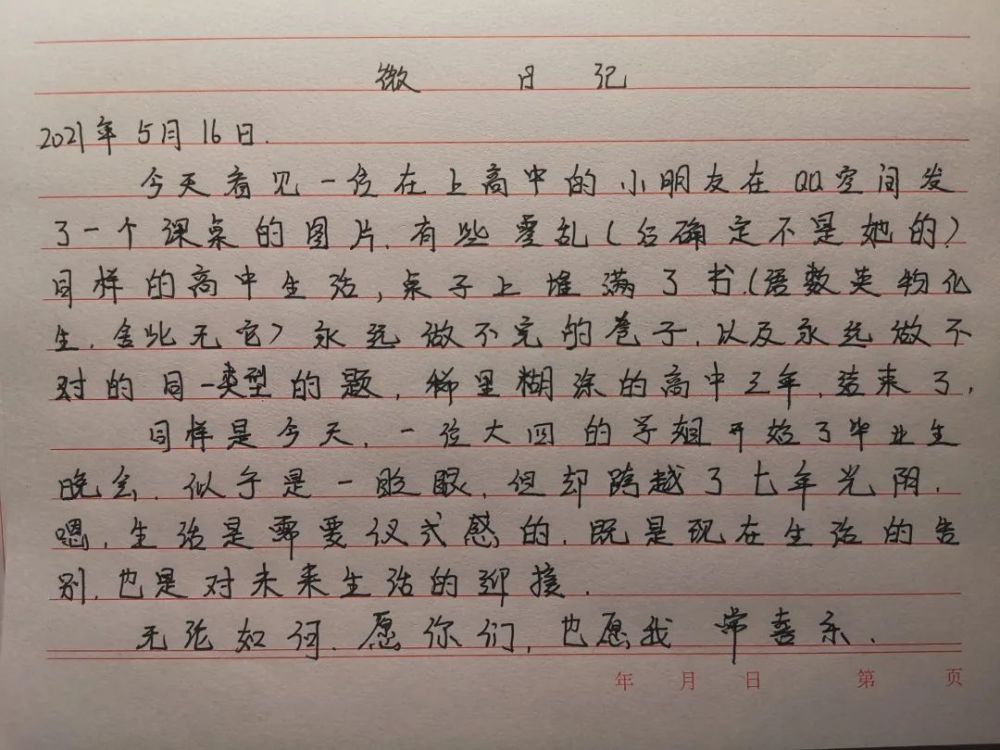 微 日 记
2021年5月16日.
今天看见一位在上高中的小朋友在QQ空间发
了一个课桌的图片,有些零乱(后确定不是她的)
同样的高中生活,桌子上堆满了书.(语数英物化
生,舍此无它)永远做不完的卷子,以及永远做不
对的同一类型的题,稀里糊涂的高中三年,结束了,
同样是今天,一位大四的学姐开始了毕业生
晚会,似乎是一眨眼,但却跨越了七年光阴,
嗯,生活是需要仪式感的,既是现在生活的告
别,也是对未来生活的迎接.
无论如何,愿你们,也愿我 常喜乐.
年 月 日 第 页